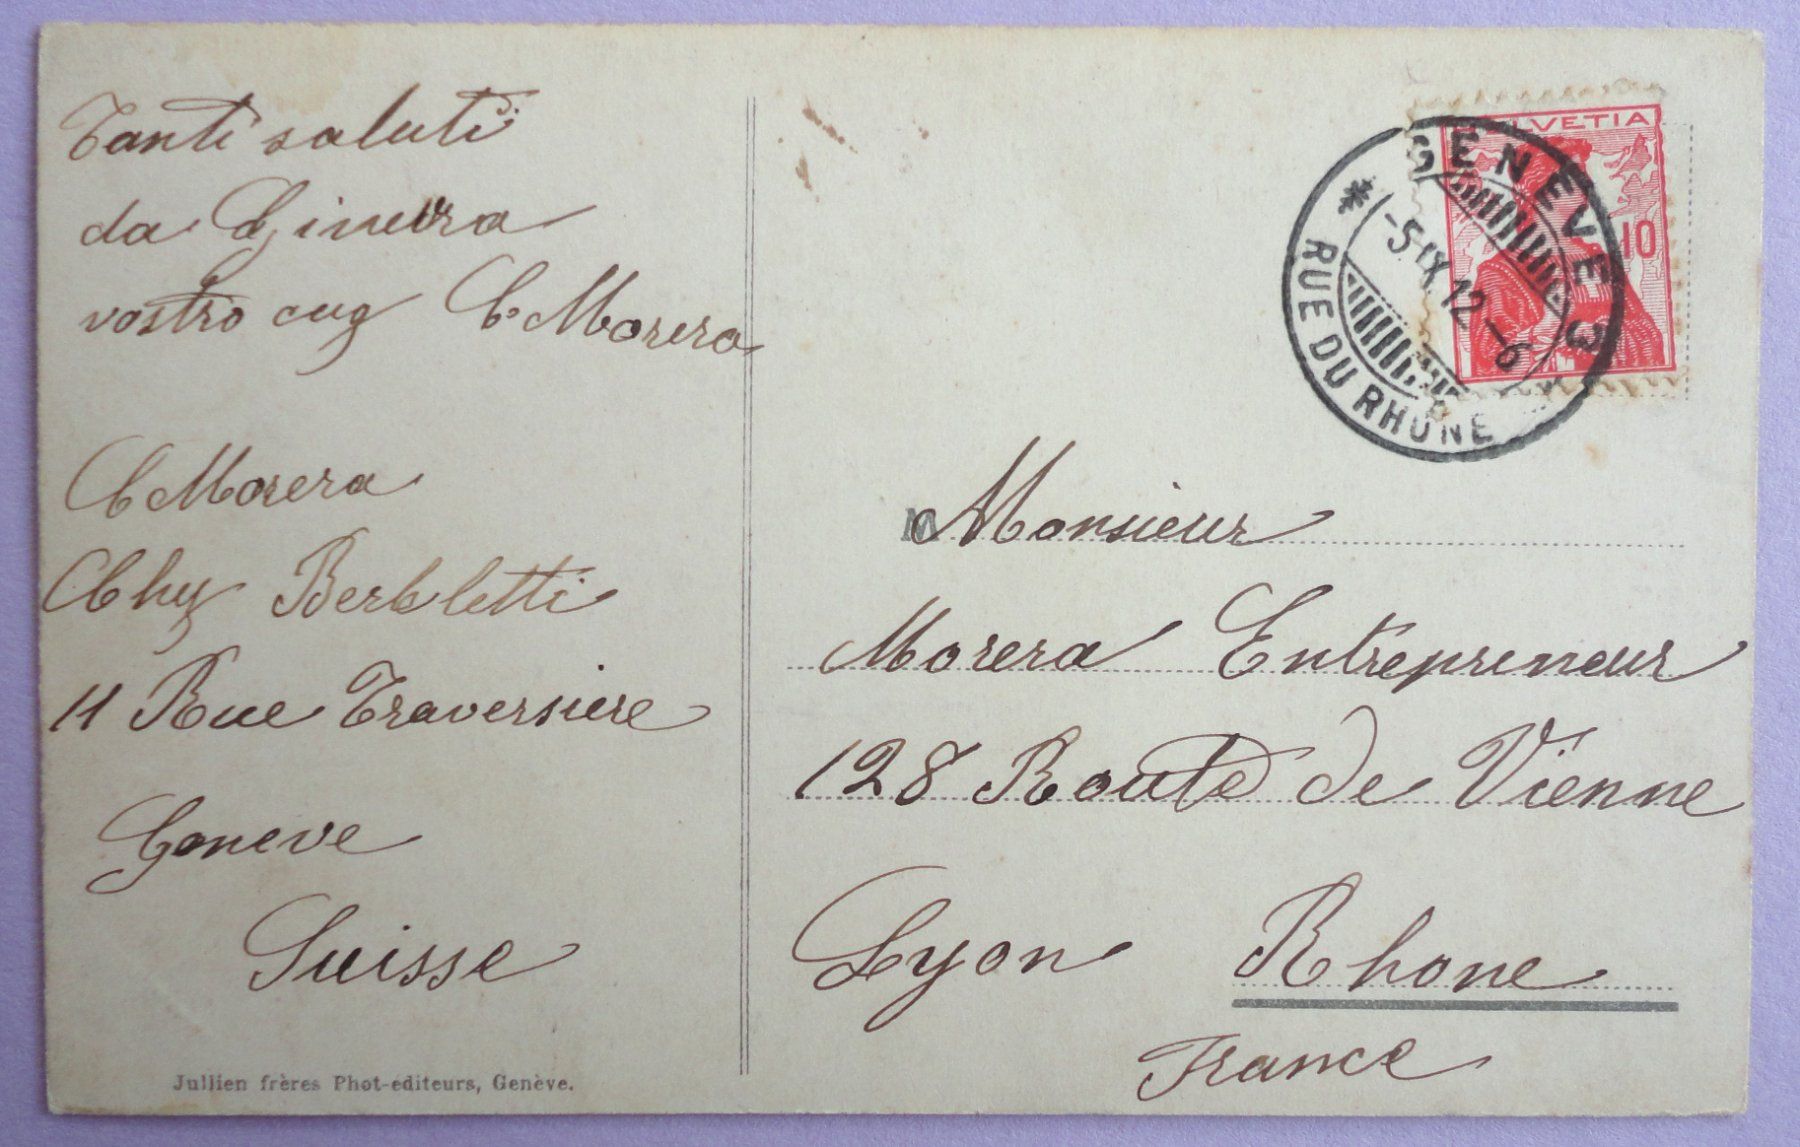 Tanti saluti
da Ginevra
vostro cug C Morera
C Morera
Chez Berbletti
11 Rue Traversiere
Geneve
Suisse
Jullien frères Phot-éditeurs, Genève.
HELVETIA
10
GENÈVE 3
-5 IX 12 -6
RUE DU RHÔNE
M
Monsieur
Morera Entrepreneur
128 Route de Vienne
Lyon Rhone
France